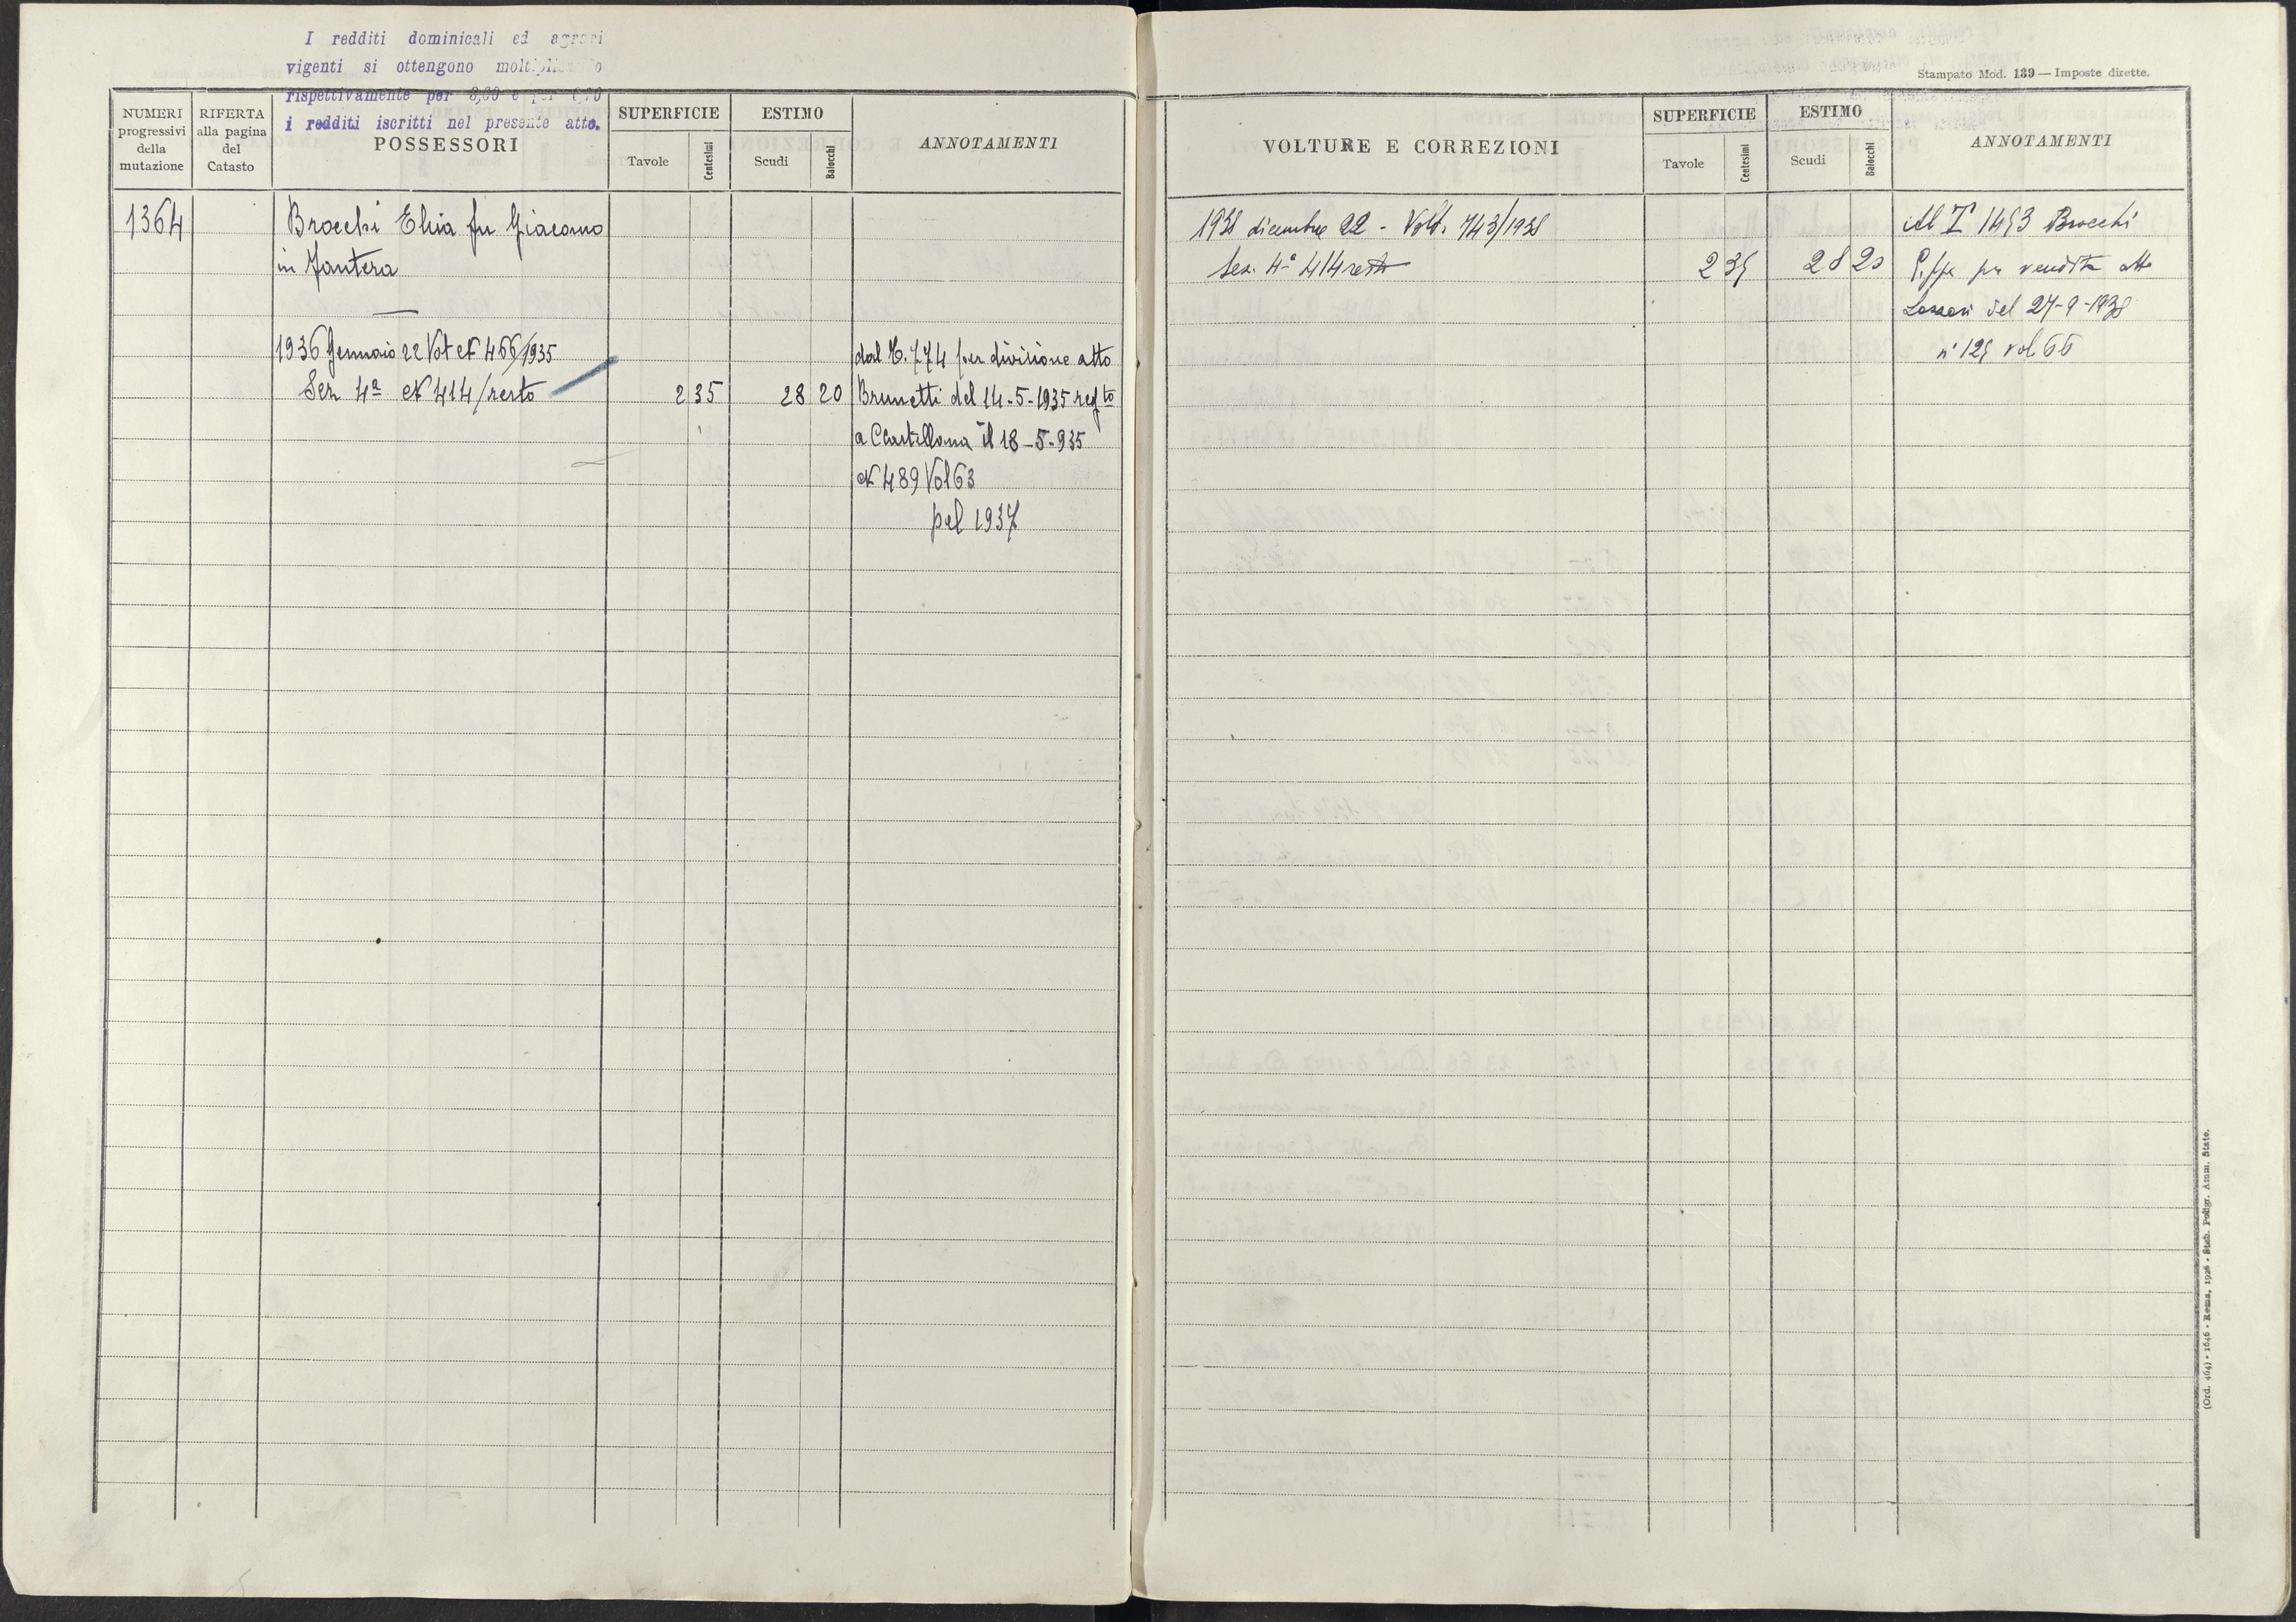 I redditi dominicali ed agrari
vigenti si ottengono
rispettivamente per e per
i redditi iscritti nel presente atto.
Stampato Mod. 139 — Imposte dirette.
NUMERI progressivi della mutazione
RIFERTA alla pagina del Catasto
POSSESSORI
SUPERFICIE
Tavole Centesimi
ESTIMO
Scudi Baiocchi
ANNOTAMENTI
1364
Brocchi Elvia fu Giacomo
in
1936 Gennaio 22 Volt N 466/1935
Sez 4ª N 414/resto 2 35 28 20
dal T. 774 per divisione atto
Brunetti del 14-5-1935 regto
a il 18-5-935
N 489 Vol 63
pel 1937
VOLTURE E CORREZIONI
SUPERFICIE
Tavole Centesimi
ESTIMO
Scudi Baiocchi
ANNOTAMENTI
1938 dicembre 22 - Volt. 743/1938
Sez. 4ª 414 resto 2 35 28 20
Al T Brocchi
per vendita atto
del 27-9-1938
vol 66
(Ord. 464) - 1646 - Roma, 1926 - Stab. Poligr. Amm. State.